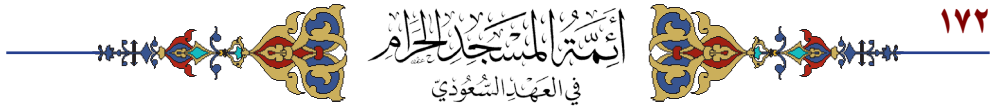 ١٧٢
أَئِمَّةُ المَسْجِدِ الحَرَامِ
فِي العَهْدِ السُّعُودِيِّ